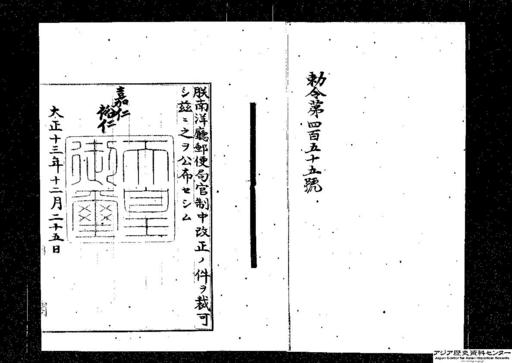 勅令第四百五十五號
朕南洋廳郵便局官制中改正ノ件ヲ裁可
シ茲ニ之ヲ公布セシム
嘉仁
裕仁
天皇
御璽
大正十三年十二月二十五日
アジア歴史資料センター
Japan Center for Asian Historical Records